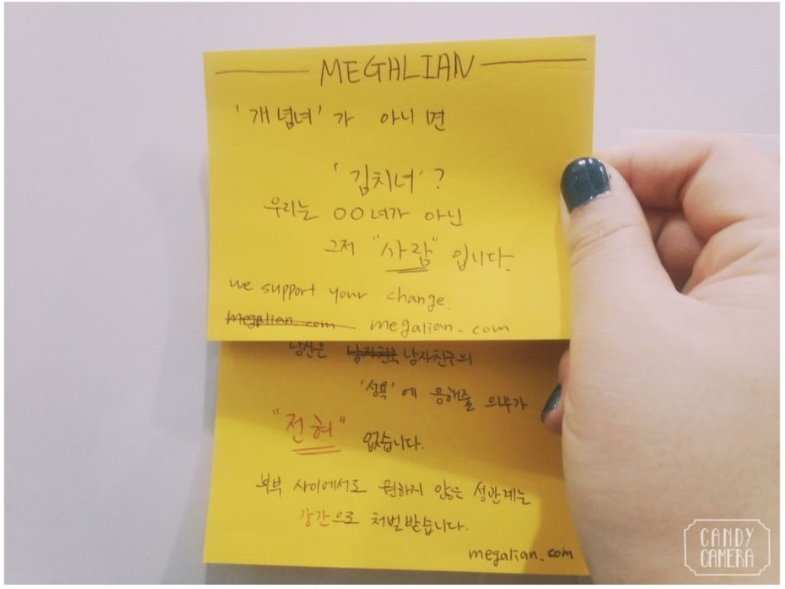 MEGALIAN
'개념녀'가 아니면
'김치녀'?
우리는 OO녀가 아닌
그저 "사람"입니다.
we support your change.
megalian.com megalian.com
남자친구의
'성욕'에 응해줄 의무가
"전혀" 없습니다.
부부 사이에서도 원하지 않은 성관계는
강간으로 처벌받습니다.
megalian.com
CANDY
CAMERA